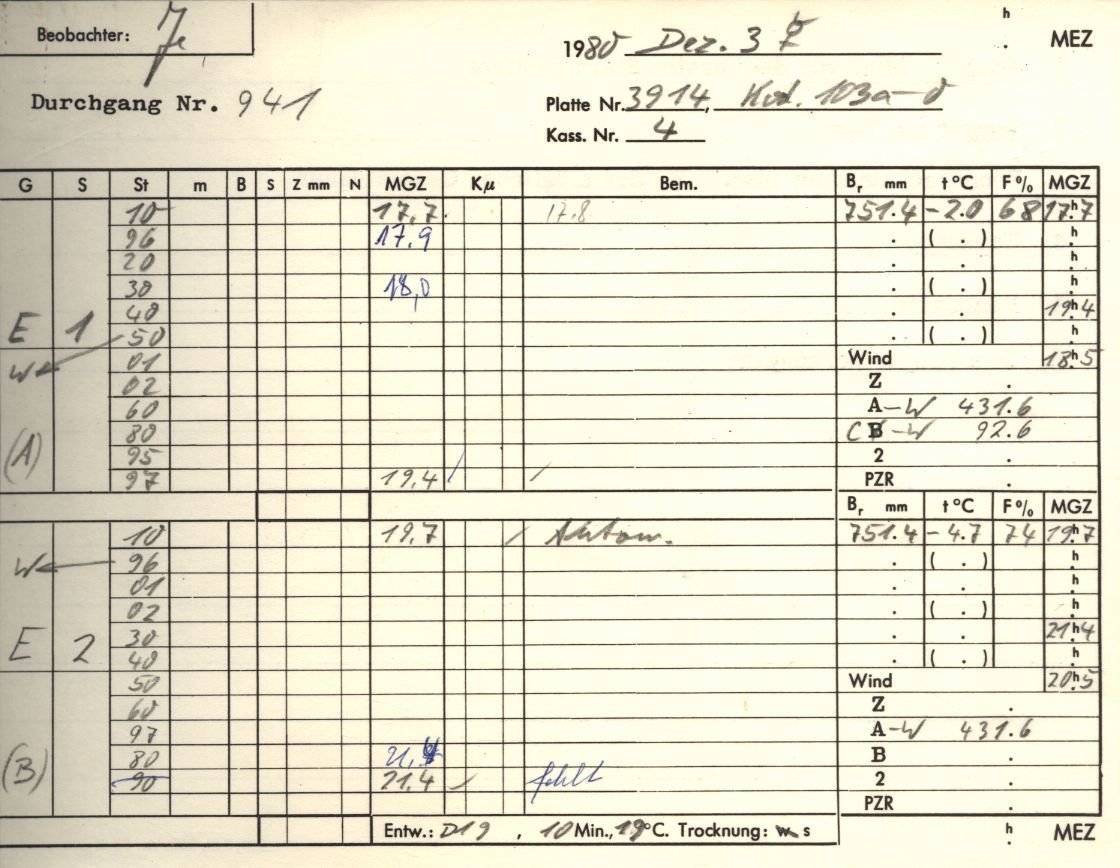 Beobachter: Je
h
. MEZ
1980 Dez. 3
Durchgang Nr. 941
Platte Nr. 3914, Kod. 103a-0
Kass. Nr. 4
G S St m B S Z mm N MGZ Kµ Bem. Br mm t°C F% MGZ
10 17.7. 17.8 751.4 -2.0 68 17h.7
96 17.9 . ( . ) h.
20 . . h.
30 18,0 . ( . ) h.
40 . . 19h.4
E 1 50 . ( . ) h.
W 01 Wind 18h.5
02 Z .
60 A-W 431.6
(A) 80 CB-W 92.6
95 2 .
97 19.4 / / PZR .
Br mm t°C F% MGZ
10 19.7 / 751.4 -4.7 74 19h.7
W 96 . ( . ) h.
01 . . h.
02 . ( . ) h.
E 2 30 . . 21h.4
40 . ( . ) h.
50 Wind 20h.5
60 Z .
97 A-W 431.6
(B) 80 B .
90 21.4 / fehlt 2 .
PZR .
Entw.: D19 , 10 Min., 19°C. Trocknung: w s
h
. MEZ